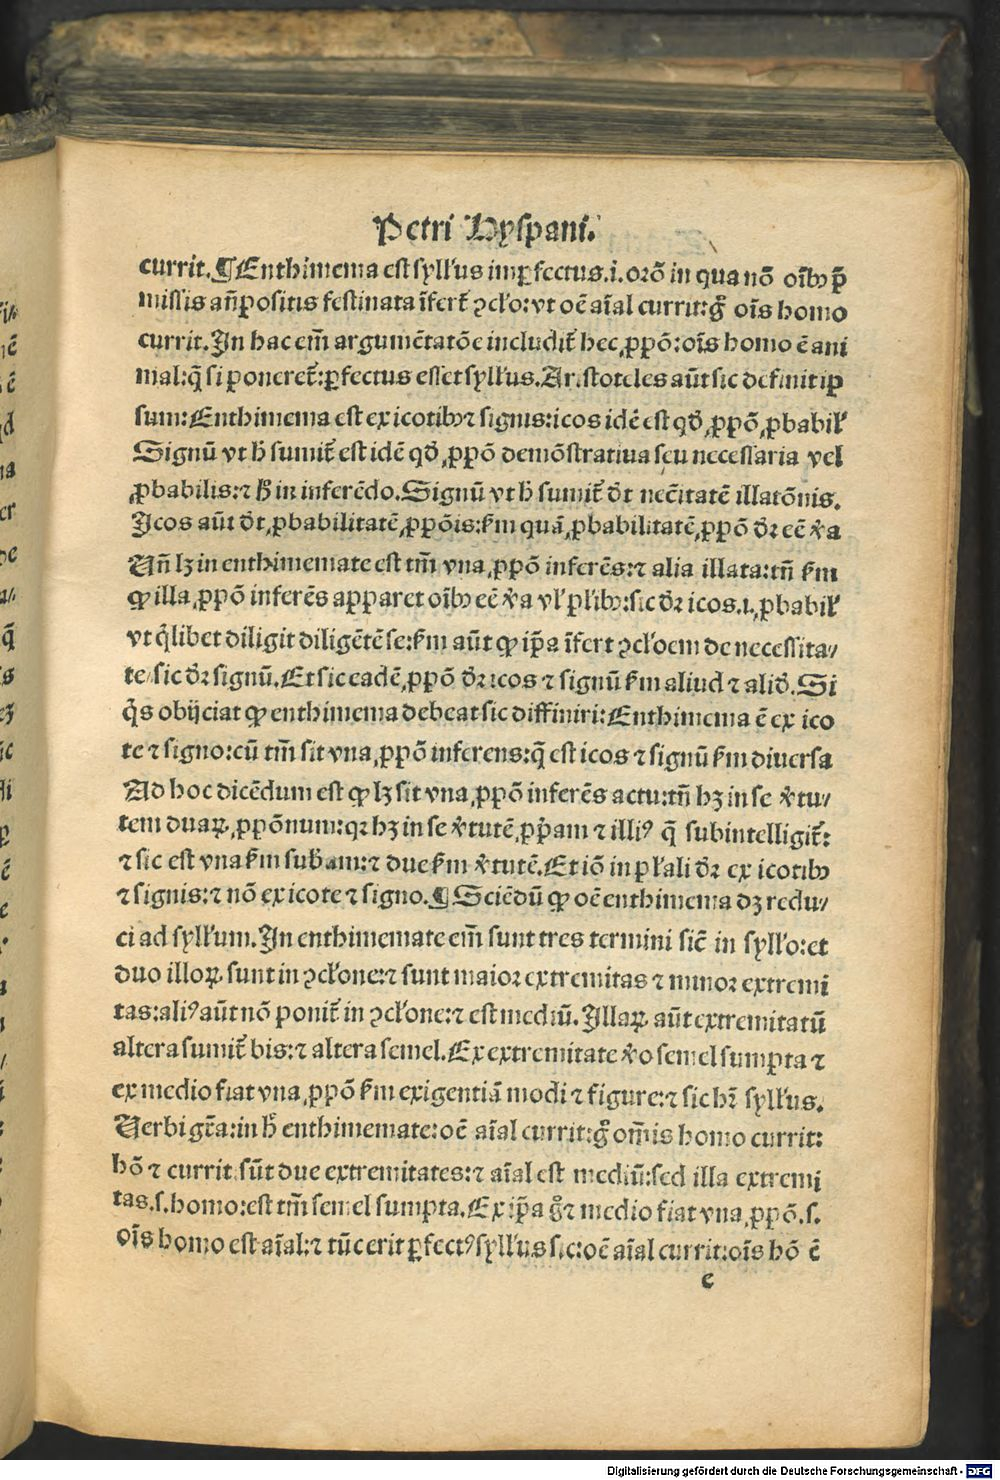 Petri Hyspani.
currit.¶Enthimema est syll'us imꝑfectus.i.orō in qua nō oīb⁹ p̄
missis an̄ꝑositis festinata īfert̄ ꝯcl'o:vt oē aīal currit:g̊ oīs homo
currit.In hac em̄ argumētatōe includit̄ hec ꝓpō:oīs homo ē ani
mal:q̄ si poneret̄:ꝑfectus esset syll'us.Aristoteles aūt sic definit ip
sum:Enthimema est ex icotib⁹ ⁊ signis:icos idē est qd̓ ꝓpō ꝓbabil'
Signū vt h̓ sumit̄ est idē qd̓ ꝓpō demōstratiua seu necessaria vel
ꝓbabilis:⁊ h̓ in inferēdo.Signū vt h̓ sumit̄ d̓t necītatē illatōnis.
Icos aūt d̓t ꝓbabilitatē ꝓpōis:s̓m quā ꝓbabilitatē ꝓpō d̓r eē v̓a
Un̄ lꝫ in enthimemate est tm̄ vna ꝓpō inferēs:⁊ alia illata:tn̄ s̓m
ꝙ illa ꝓpō inferēs apparet oīb⁹ eē v̓a vl' pl'ib⁹:sic d̓r icos.i.ꝓbabil'
vt q̇libet diligit diligētē se:s̓m aūt ꝙ ip̄a īfert ꝯcl'oem de necessita⸗
te sic d̓r signū.Et sic eadē ꝓpō d̓r icos ⁊ signū s̓m aliud ⁊ alid̓.Si
q̇s obijciat ꝙ enthimema debeat sic diffiniri:Enthimema ē ex ico
te ⁊ signo:cū tm̄ sit vna ꝓpō inferens:q̄ est icos ⁊ signū s̓m diuersa
Ad hoc dicēdum est ꝙ lꝫ sit vna ꝓpō inferēs actu:tn̄ hꝫ in se v̓tu⸗
tem duaꝝ ꝓpōnum:qꝛ hꝫ in se v̓tutē ꝓpriam ⁊ illi⁹ q̄ subintelligit̄:
⁊ sic est vna s̓m subam:⁊ due s̓m v̓tutē.Et iō in pl'ali d̓r ex icotib⁹
⁊ signis:⁊ nō ex icote ⁊ signo.¶Sciēdū ꝙ oē enthimema dꝫ redu⸗
ci ad syll'um.In enthimemate em̄ sunt tres termini sic̄ in syll'o:et
duo illoꝝ sunt in ꝯcl'one:⁊ sunt maior extremitas ⁊ minor extremi
tas:ali⁹ aūt nō ponit̄ in ꝯcl'one:⁊ est mediū.Illaꝝ aūt extremitatū
altera sumit̄ bis:⁊ altera semel.Ex extremitate v̓o semel sumpta ⁊
ex medio fiat vna ꝓpō s̓m exigentiā modi ⁊ figure:⁊ sic hr̄ syll'us.
Uerbi gr̄a:in h̓ enthimemate:oē aīal currit:g̊ om̄is homo currit:
hō ⁊ currit sūt due extremitates:⁊ aīal est mediū:sed illa extremi
tas.s.homo:est tm̄ semel sumpta.Ex ip̄a g̊ ⁊ medio fiat vna ꝓpō.s.
oīs homo est aīal:⁊ tūc erit ꝑfect⁹ syll'us sic:oē aīal currit:oīs hō ē
e
Digitalisierung gefördert durch die Deutsche Forschungsgemeinschaft - DFG